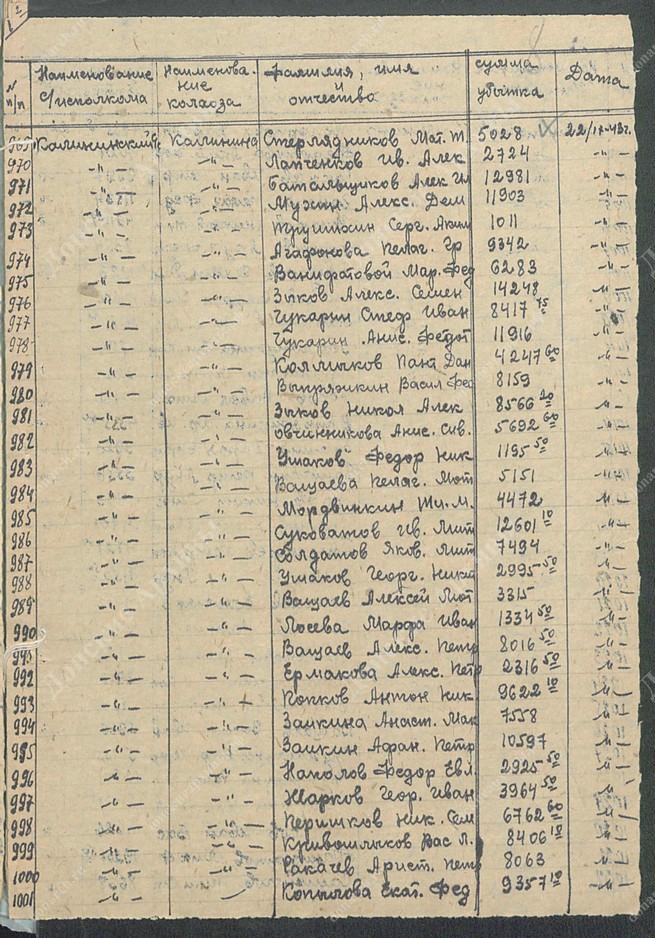 2
N п/п Наименование с/исполкома Наименование колхоза фамилия, имя и отчество сумма убытка Дата
969 Калининский Калинина Стерлядников Мат. Т. 5028 22/IV-43г.
970 -"- -"- Лапченков Ив. Алек 2724 -"-
971 -"- -"- Батальщиков Алек Ил 12981 -"-
972 -"- -"- Мухин Алекс. Дем 11903 -"-
973 -"- -"- Трушихин Серг. Аким 1011 -"-
974 -"- -"- Агафонова Пелаг. Гр 9342 -"-
975 -"- -"- Ванифатовой Мар. Фед 6283 -"-
976 -"- -"- Зыков Алекс. Семен 14248 -"-
977 -"- -"- Чукарин Стеф Иван 8417 75 -"-
978 -"- -"- Чукарин Анис. Федот 11916 -"-
979 -"- -"- Колычков Пант Дан 4247 60 -"-
980 -"- -"- Выпряжкин Васил Фед 8159 -"-
981 -"- -"- Зыков Никол Алек 8566 20 -"-
982 -"- -"- Овчинникова Анис. Сив. 5692 60 -"-
983 -"- -"- Ушаков Федор Ник 1195 50 -"-
984 -"- -"- Ващаева Пелаг. Мот 5151 -"-
985 -"- -"- Мордвинкин М. 4472 -"-
986 -"- -"- Суковатов Ив. Мит 12601 10 -"-
987 -"- -"- Солдатов Яков. Мит 7494 -"-
988 -"- -"- Ушаков Георг. Никит 2995 50 -"-
989 -"- -"- Ващаев Алексей Мот 3315 -"-
990 -"- -"- Лосева Марфа Иван 1334 50 -"-
991 -"- -"- Ващаев Алекс. Петр 8016 50 -"-
992 -"- -"- Ермакова Алекс. Петр 2316 50 -"-
993 -"- -"- Попков Антон Ник 9622 10 -"-
994 -"- -"- Заикина Анаст. Мак 7558 -"-
995 -"- -"- Заикин Афан. Петр 10597 -"-
996 -"- -"- Наполов Федор Евл. 2925 50 -"-
997 -"- -"- Жарков Геор. Иван 3964 50 -"-
998 -"- -"- Перишков Ник. Сем 6762 60 -"-
999 -"- -"- Кривошлыков Вас Л. 8406 10 -"-
1000 -"- -"- Ракачев Арист. Петр 8063 -"-
1001 -"- Копылова Екат. Фед 9357 10 -"-